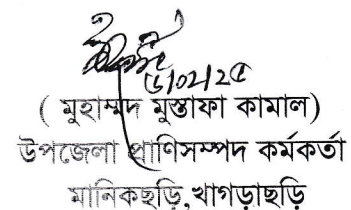 ( মুহাম্মদ মুস্তাফা কামাল)
উপজেলা প্রাণিসম্পদ কর্মকর্তা
মানিকছড়ি,খাগড়াছড়ি